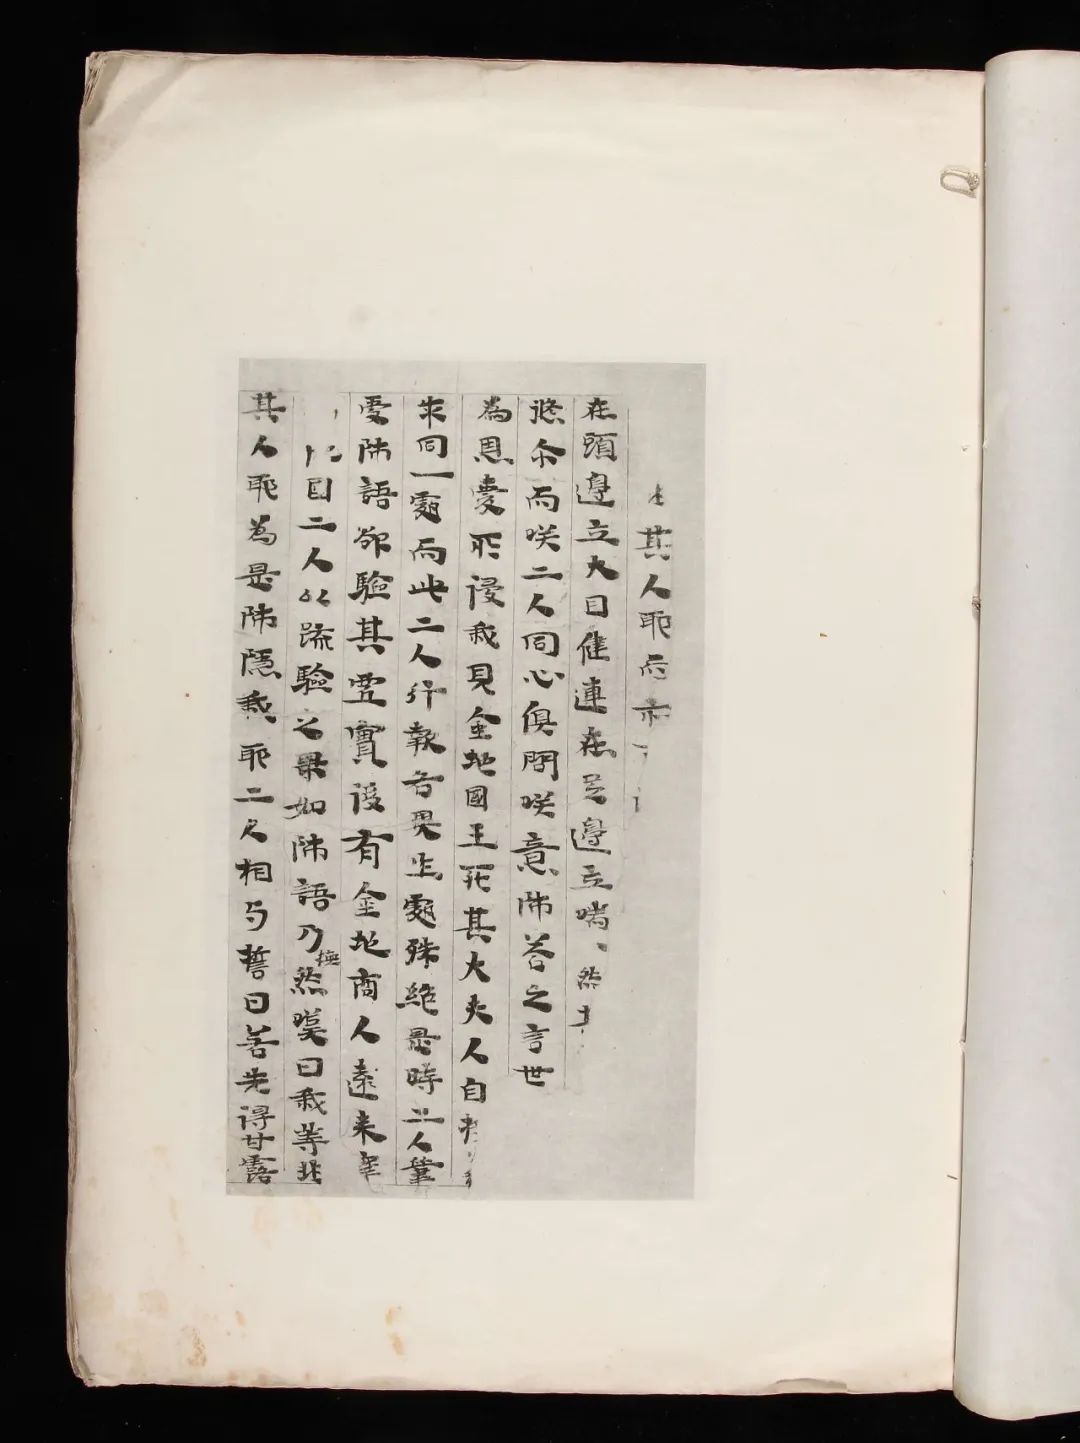 其人耶而亦
在頭邊立大目揵連在足邊立喘、然
悠尒而咲二人同心俱問咲意師荅之言世
為恩愛所侵我見金地國王死其大夫人自
求同一處而此二人行報各異生處殊絕是時二人筆
受師語欲驗其虛實後有金地商人遠来
目二人以疏驗之果如師語乃憮然嘆曰我等非
其人耶為是師隱我耶二人相与誓曰若先得甘露